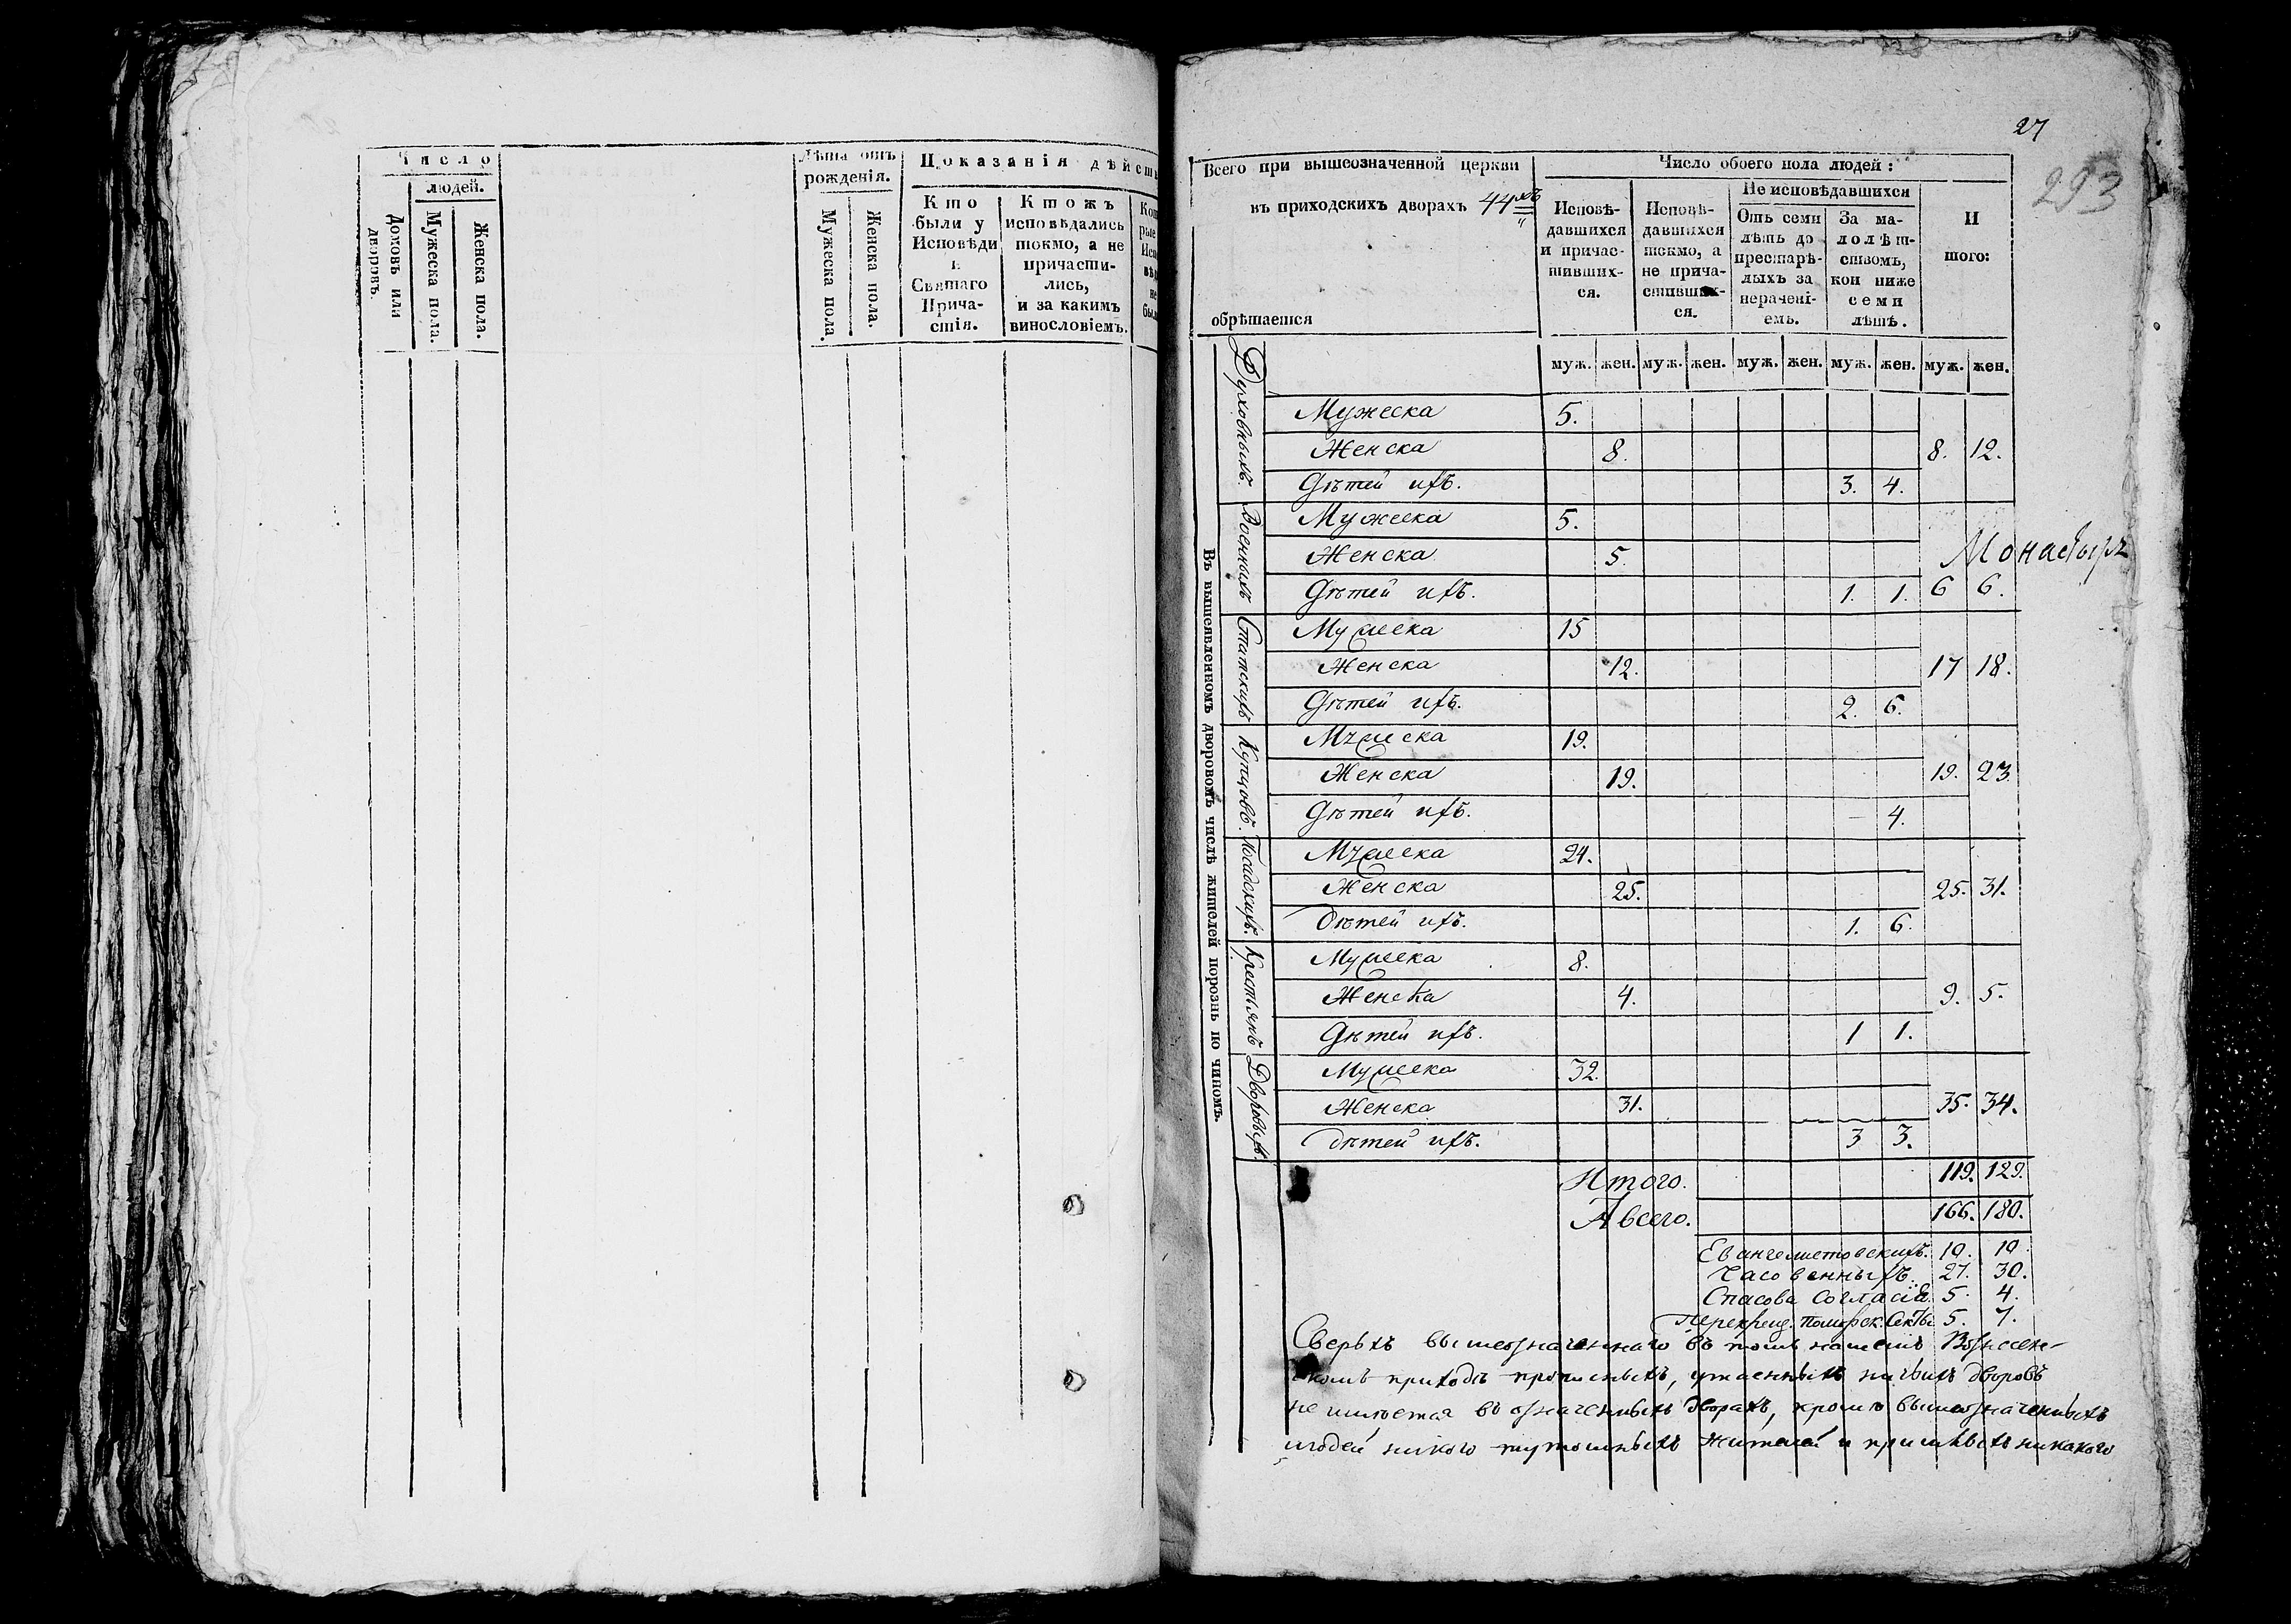 Число
людей.
Домовъ или
дворовъ.
Мужеска пола.
Женска пола.
Лѣта отъ
рожденія.
Мужеска пола.
Женска пола.
Показанія дѣйст
Кто
были у
Исповѣди
и
Святаго
Прича-
стія.
Ктожъ
исповѣдались
токмо, а не
причасти-
лись,
и за какимъ
винословіемъ.
27
293
Всего при вышеозначенной церкви
въ приходскихъ дворахъ 44хъ
обрѣтается
Число обоего пола людей:
Исповѣ-
давшихся
и причас-
тивших-
ся.
Исповѣ-
давшихся
токмо, а
не прича-
стивших-
ся.
Не исповѣдавшихся
Отъ семи
лѣтъ до
престарѣ-
лыхъ за
нерачені-
емъ.
За ма-
лолѣт-
ствомъ,
кои ниже
семи
лѣтъ.
И
того:
муж. жен. муж. жен. муж. жен. муж. жен. муж. жен.
Въ вышеявленномъ дворовомъ числѣ жителей порознь по чиномъ.
Духовныхъ.
Мужеска 5.
Женска 8. 8. 12.
Дѣтей ихъ. 3. 4.
Военныхъ
Мужеска 5.
Женска 5.
Монастырь
Дѣтей ихъ. 1. 1. 6 6.
Статскихъ
Мужеска 15
Женска 12. 17 18.
Дѣтей ихъ. 2. 6.
Купцовъ.
Мужеска 19.
Женска 19. 19. 23
Дѣтей ихъ. – 4.
Посадскихъ.
Мужеска 24.
Женска 25. 25. 31.
Дѣтей ихъ. 1. 6.
Крестьянъ
Мужеска 8.
Женска 4. 9. 5.
Дѣтей ихъ. 1 1.
Дворовыхъ.
Мужеска 32.
Женска 31. 35. 34.
Дѣтей ихъ. 3 3.
Итого. 119. 129.
А всего. 166. 180.
Евангелистовскихъ. 10. 10.
Часовенныхъ. 27. 30.
Спасова Согласія. 5. 4.
Перекрещ. Поморск. Секты 5. 7.
Сверхъ вышеозначеннаго въ томъ нашемъ Вознесен-
скомъ приходѣ прописныхъ, утаенныхъ ничьихъ дворовъ
не имѣется въ означенныхъ дворахъ, кромѣ вышеозначенныхъ
людей никого тутошныхъ жителей и пришлыхъ никакого